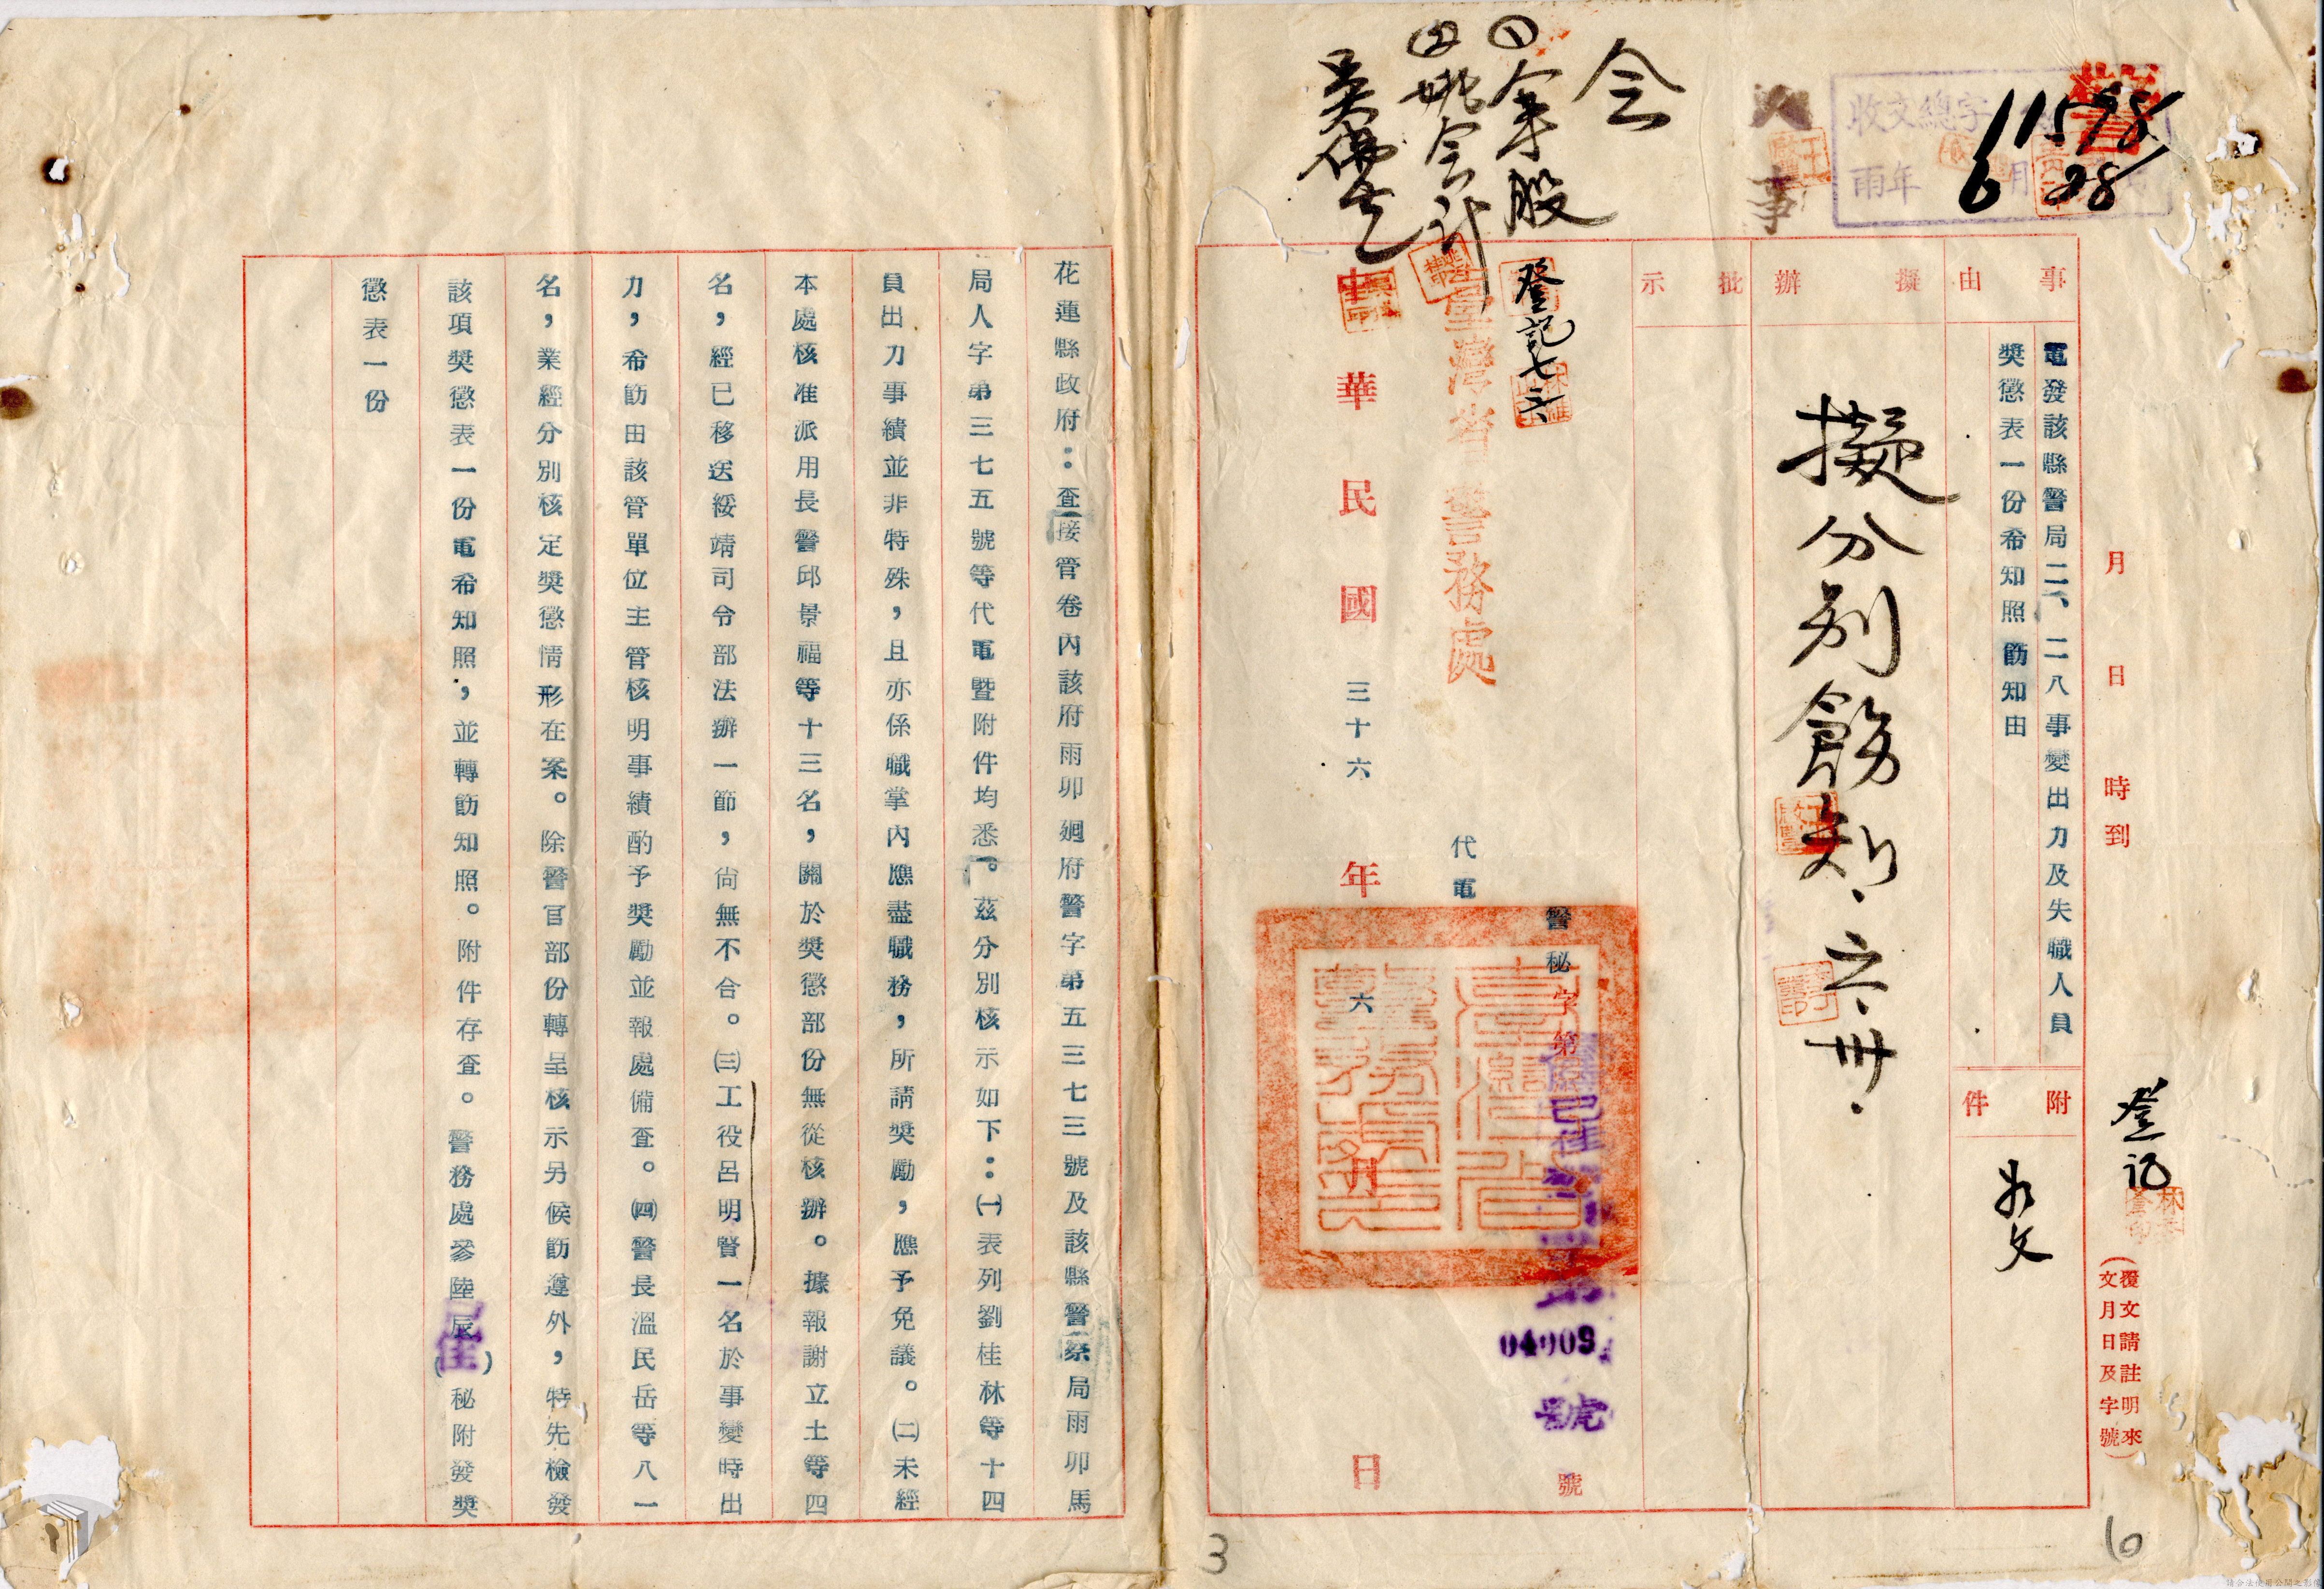 会
①人事股
②姚会計
人事
收文總字
11578
雨年6月28
月 日 時到
事由
電發該縣警局二、二八事變出力及失職人員
獎懲表一份希知照飭知由
附件
如文
登記
(覆文請註明來
文月日及字號)
擬辦
擬分別飭知.六.卅.
批示
登記七、六
臺灣省警務處
代電
警秘字第
04009
號
號
中華民國三十六年六月 日
花蓮縣政府：查接管卷內該府雨卯廻府警字第五三七三號及該縣警察局雨卯馬
局人字第三七五號等代電暨附件均悉。茲分別核示如下：㈠表列劉桂林等十四
員出力事績並非特殊，且亦係職掌內應盡職務，所請獎勵，應予免議。㈡未經
本處核准派用長警邱景福等十三名，關於獎懲部份無從核辦。據報謝立土等四
名，經已移送綏靖司令部法辦一節，尚無不合。㈢工役呂明賢一名於事變時出
力，希飭由該管單位主管核明事績酌予獎勵並報處備查。㈣警長溫民岳等八一
名，業經分別核定獎懲情形在案。除警官部份轉呈核示另候飭遵外，特先檢發
該項獎懲表一份電希知照，並轉飭知照。附件存查。警務處參陸辰()秘附發獎
懲表一份
3
6